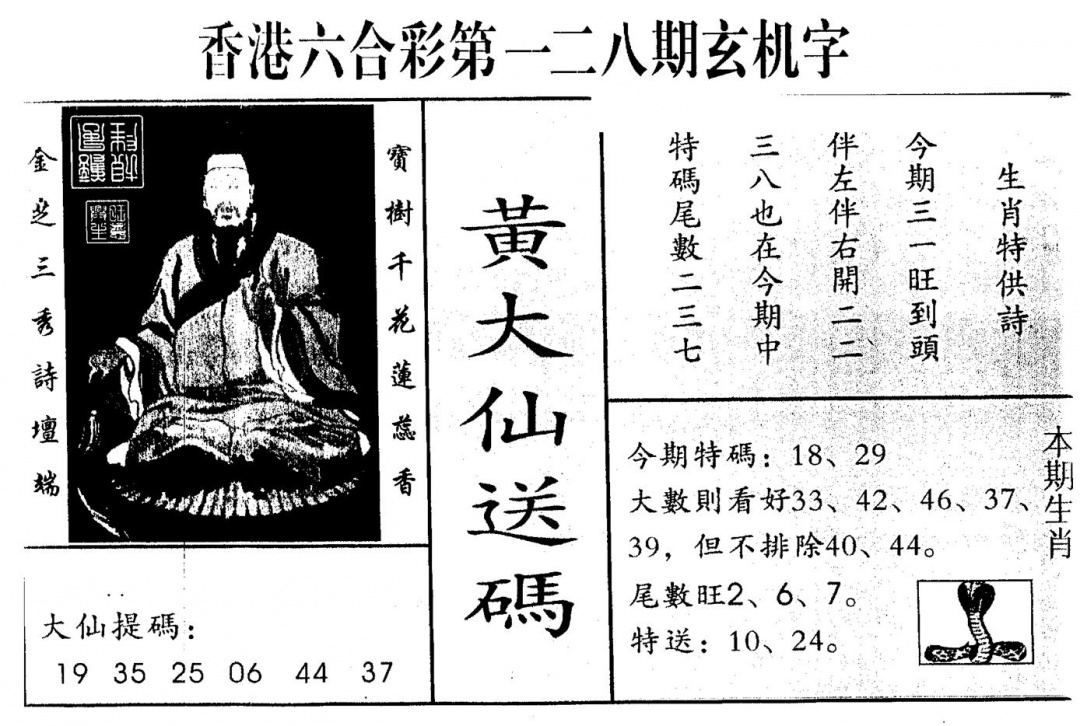 香港六合彩第一二八期玄机字
寶樹千花蓮蕊香
金芝三秀詩壇端
大仙提碼：
19 35 25 06 44 37
黃大仙送碼
生肖特供詩
今期三一旺到頭
伴左伴右開二二
三八也在今期中
特碼尾數二三七
今期特碼：18、29
大數則看好33、42、46、37、
39，但不排除40、44。
尾數旺2、6、7。
特送：10、24。
本期生肖